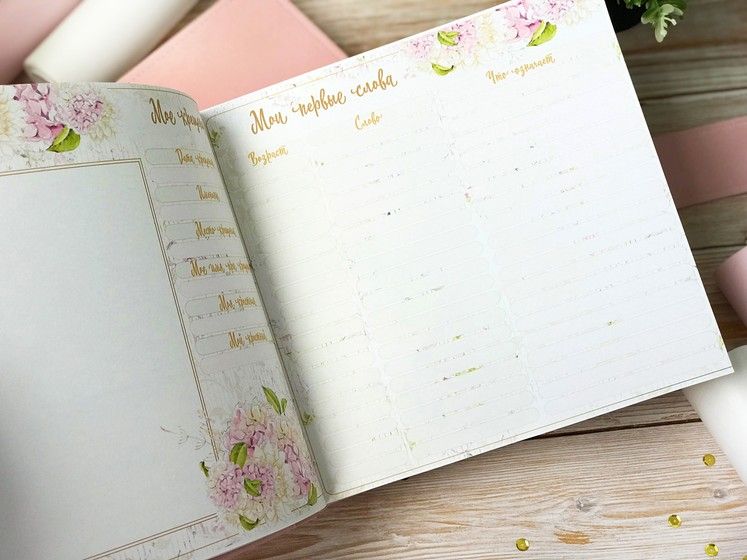 Мое
Дата
Место
Мое имя при
Моя
Мой
Мои первые слова
Возраст
Слово
Что означает